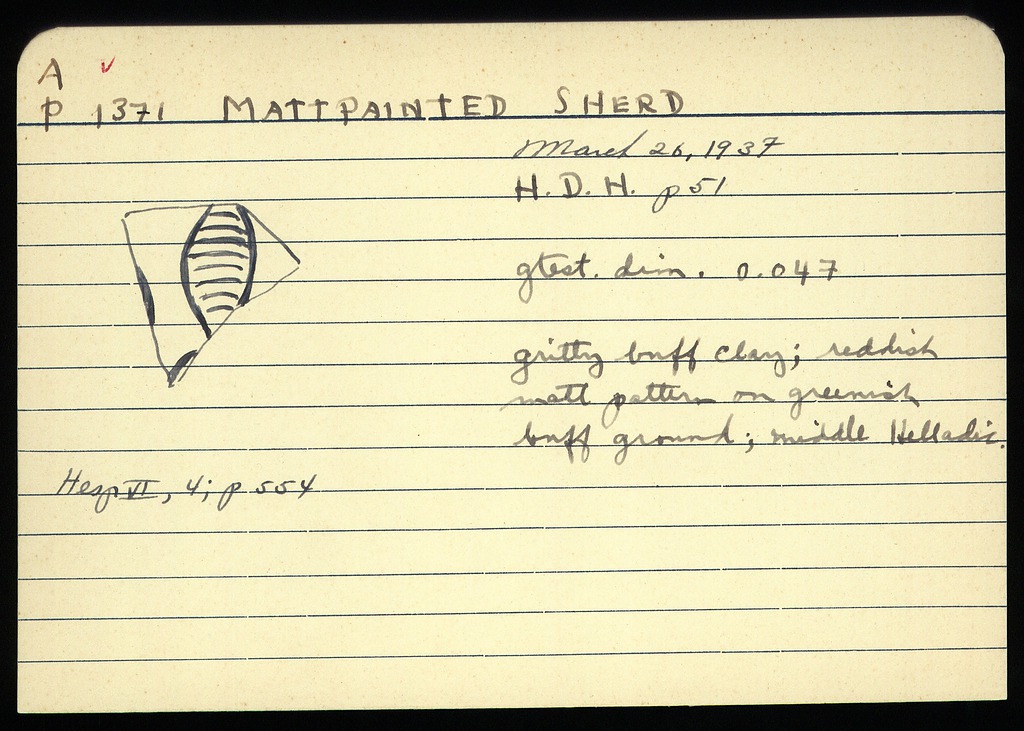 A
P 1371 MATTPAINTED SHERD
March 26, 1937
H. D. H. p 51
gtest. dim. 0.047
gritty buff clay; reddish
matt pattern on greenish
buff ground; middle Helladic.
Hesp VI, 4; p 554